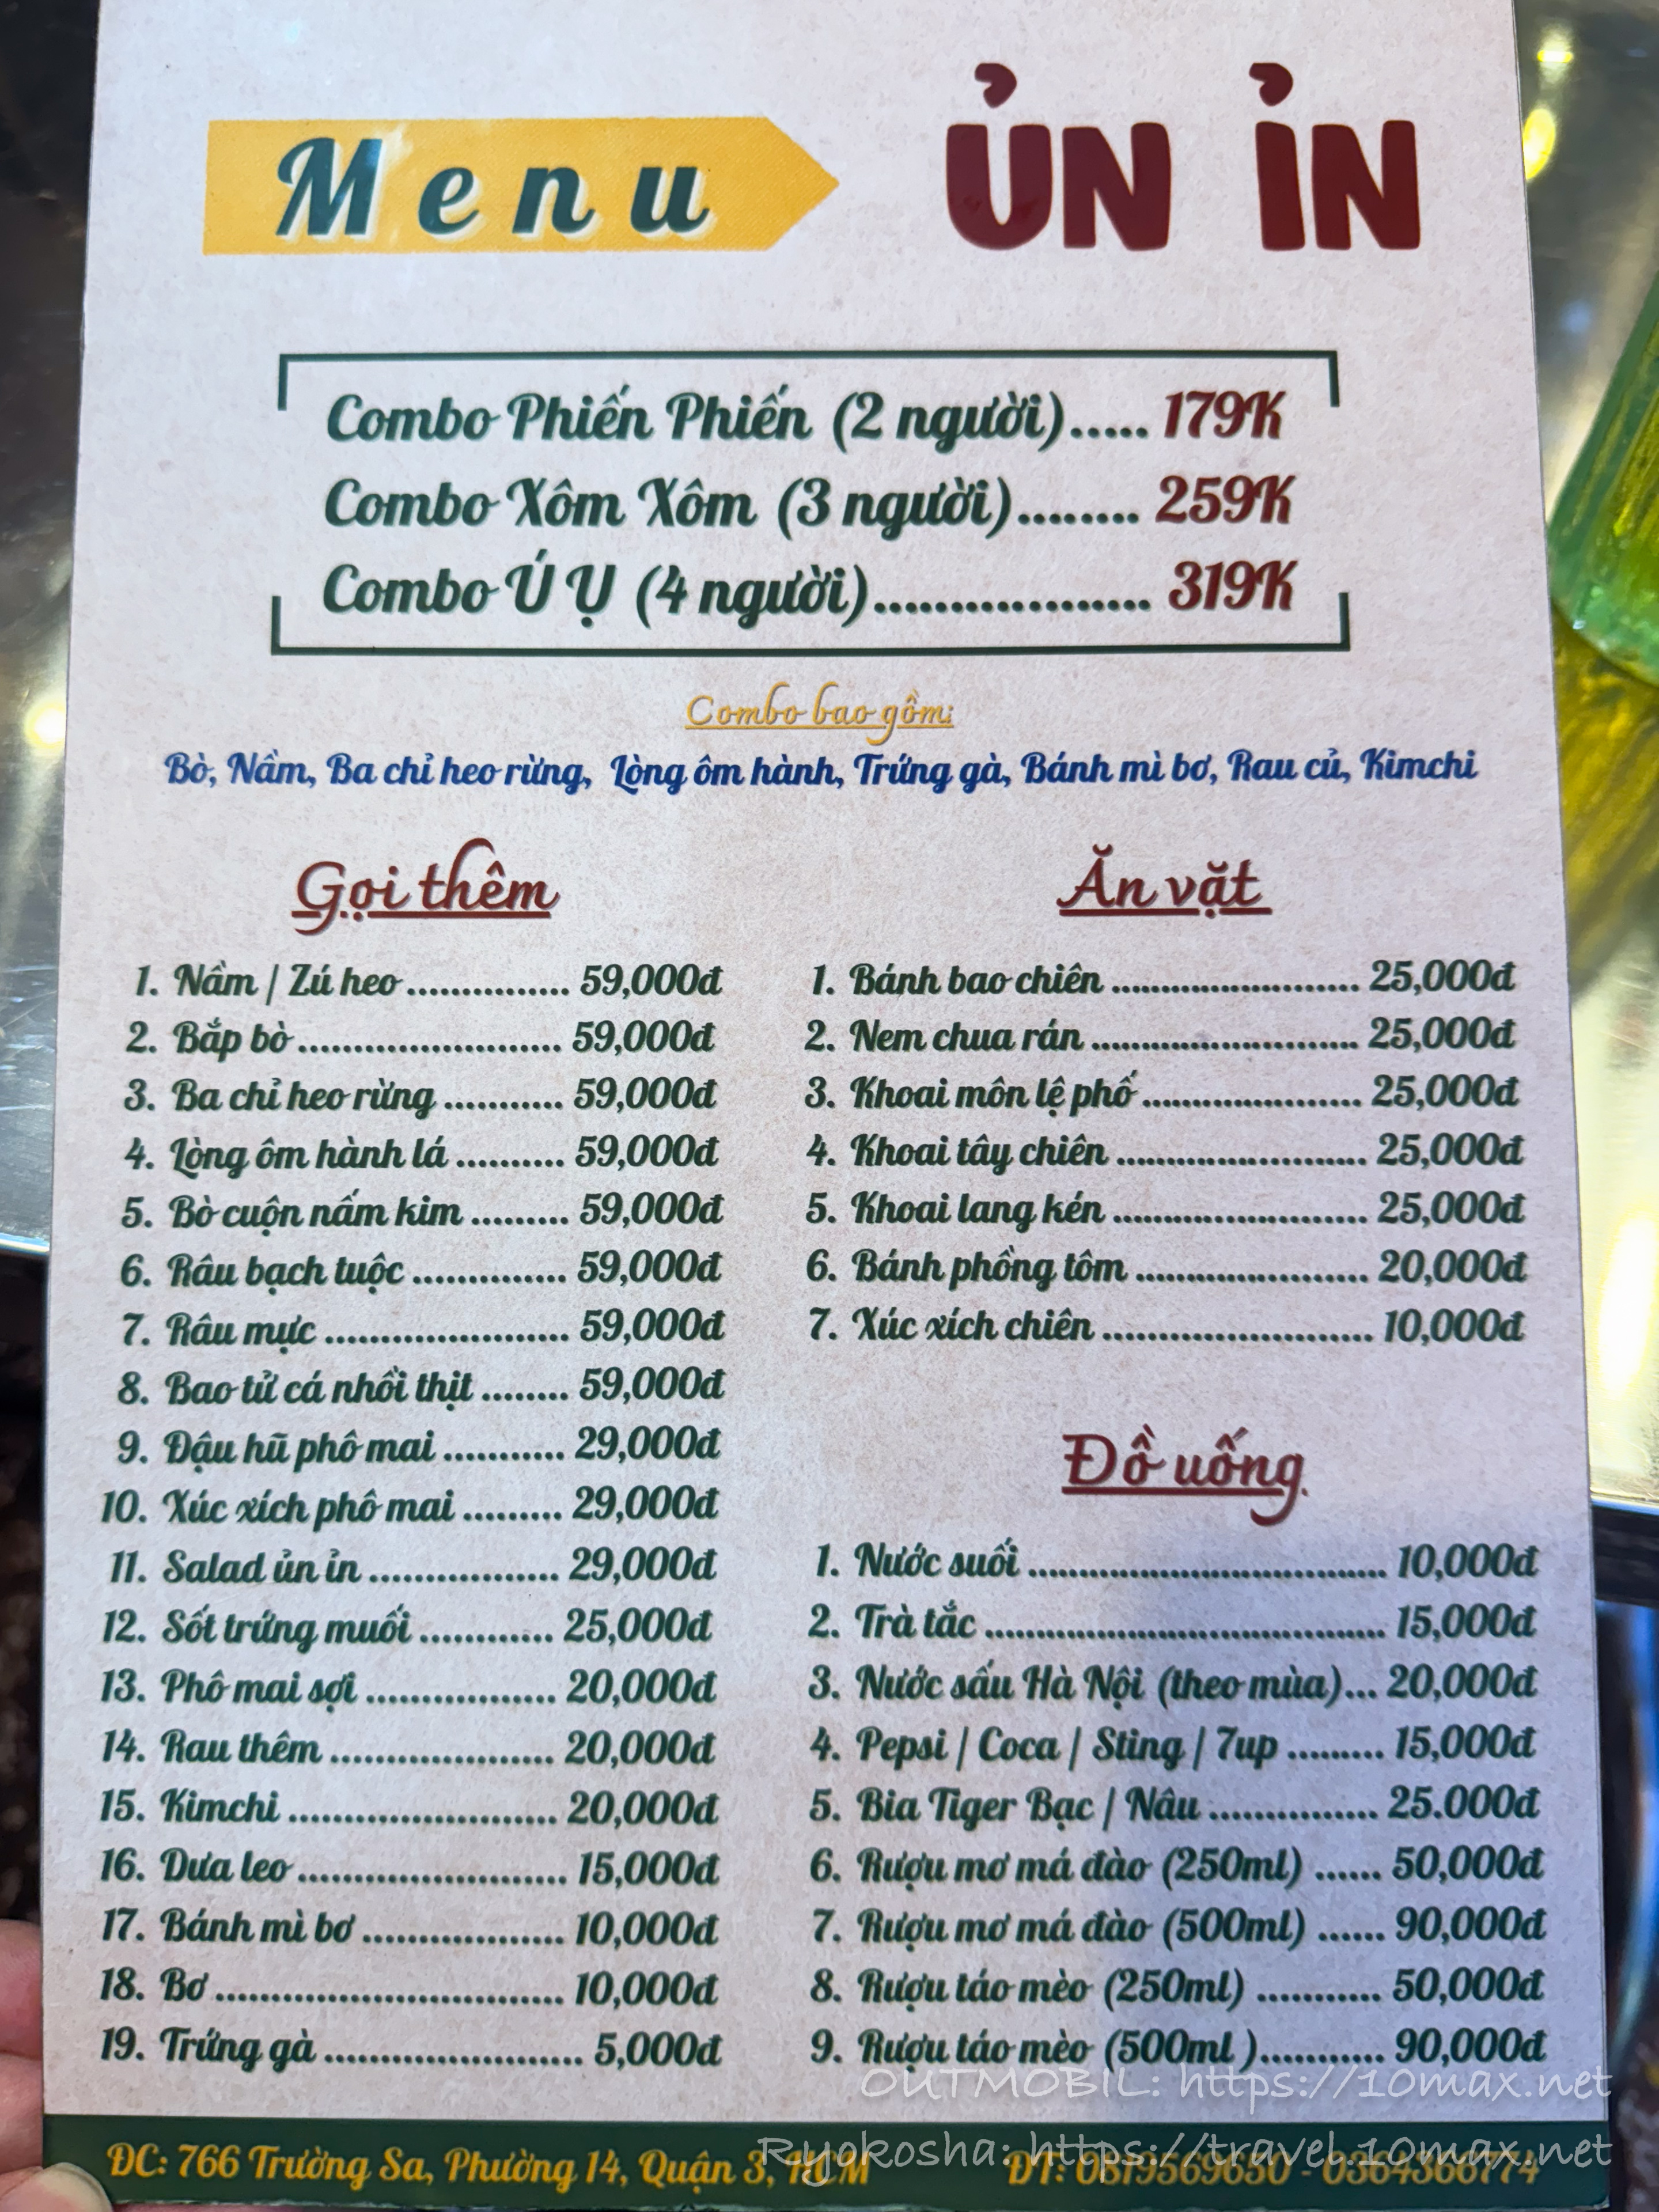 Menu ỦN ỈN
Combo Phiến Phiến (2 người)..... 179K
Combo Xôm Xôm (3 người)........ 259K
Combo Ú Ụ (4 người).................. 319K
Combo bao gồm:
Bò, Nầm, Ba chỉ heo rừng, Lòng ôm hành, Trứng gà, Bánh mì bơ, Rau củ, Kimchi
Gọi thêm
1. Nầm / Zú heo ............... 59,000đ
2. Bắp bò ........................ 59,000đ
3. Ba chỉ heo rừng ........... 59,000đ
4. Lòng ôm hành lá .......... 59,000đ
5. Bò cuộn nấm kim ......... 59,000đ
6. Râu bạch tuộc .............. 59,000đ
7. Râu mực ...................... 59,000đ
8. Bao tử cá nhồi thịt ........ 59,000đ
9. Đậu hũ phô mai ........... 29,000đ
10. Xúc xích phô mai ......... 29,000đ
11. Salad ủn ỉn ................. 29,000đ
12. Sốt trứng muối ............ 25,000đ
13. Phô mai sợi ................. 20,000đ
14. Rau thêm .................... 20,000đ
15. Kimchi ........................ 20,000đ
16. Dưa leo ........................ 15,000đ
17. Bánh mì bơ .................. 10,000đ
18. Bơ ............................... 10,000đ
19. Trứng gà ....................... 5,000đ
Ăn vặt
1. Bánh bao chiên ........................ 25,000đ
2. Nem chua rán .......................... 25,000đ
3. Khoai môn lệ phố ..................... 25,000đ
4. Khoai tây chiên ........................ 25,000đ
5. Khoai lang kén ......................... 25,000đ
6. Bánh phồng tôm ....................... 20,000đ
7. Xúc xích chiên .......................... 10,000đ
Đồ uống
1. Nước suối ................................... 10,000đ
2. Trà tắc ....................................... 15,000đ
3. Nước sấu Hà Nội (theo mùa)... 20,000đ
4. Pepsi / Coca / Sting / 7up ......... 15,000đ
5. Bia Tiger Bạc / Nâu ................ 25.000đ
6. Rượu mơ má đào (250ml) ...... 50,000đ
7. Rượu mơ má đào (500ml) ...... 90,000đ
8. Rượu táo mèo (250ml) ........... 50,000đ
9. Rượu táo mèo (500ml )........... 90,000đ
OUTMOBIL: https://10max.net
ĐC: 766 Trường Sa, Phường 14, Quận 3, HCM ĐT: 0819569650 - 0364366774
Ryokosha: https://travel.10max.net